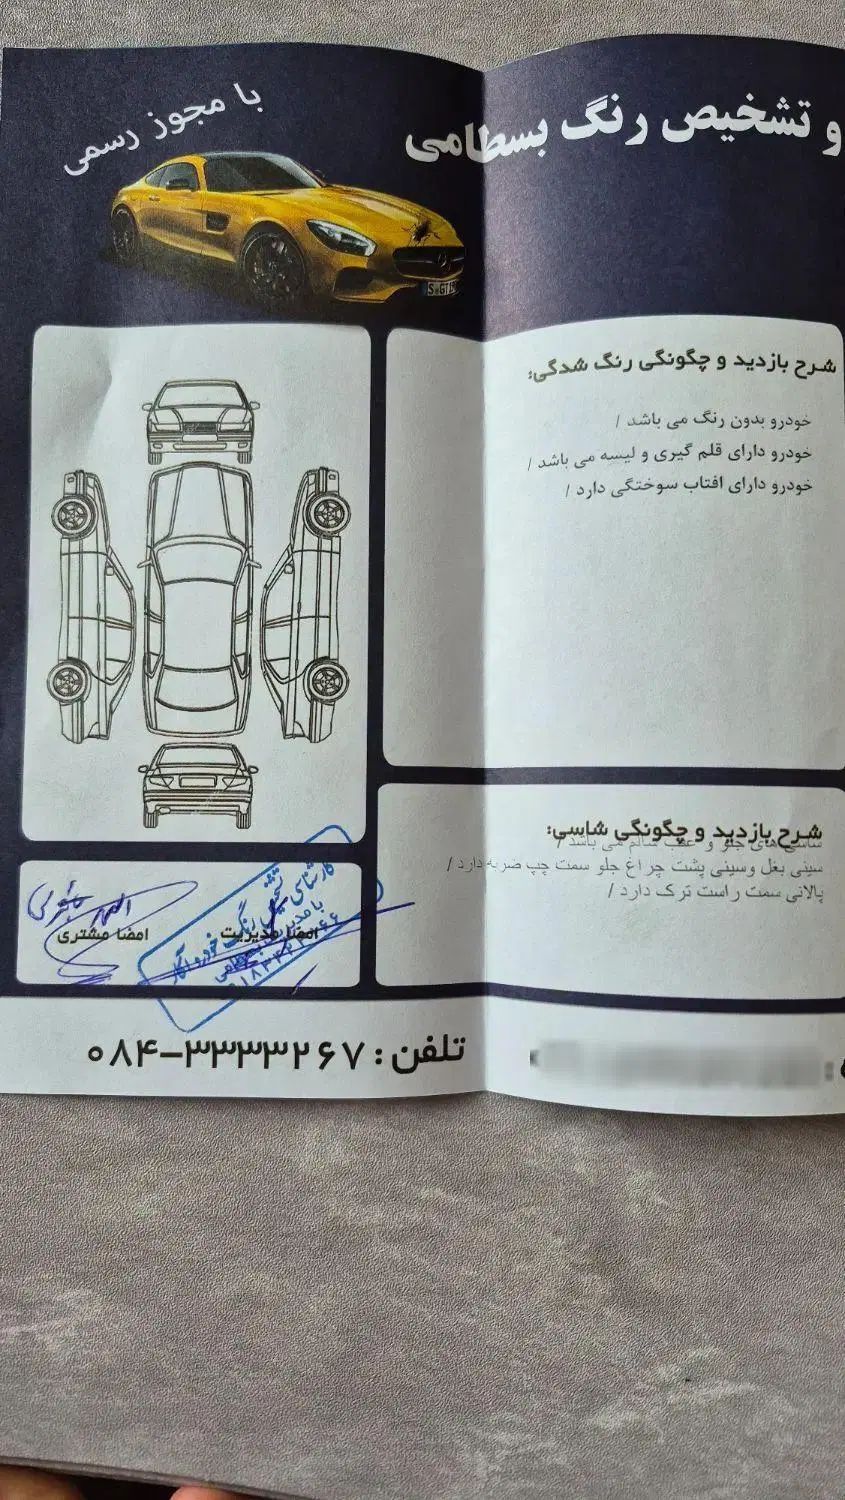 با مجوز رسمی
و تشخیص رنگ بسطامی
S GT
شرح بازدید و چگونگی رنگ شدگی:
خودرو بدون رنگ می باشد /
خودرو دارای قلم گیری و لیسه می باشد /
خودرو دارای افتاب سوختگی دارد /
شرح بازدید و چگونگی شاسی:
شاسی های جلو و عقب سالم می باشد /
سینی بغل وسینی پشت چراغ جلو سمت چپ ضربه دارد /
پالانی سمت راست ترک دارد /
امضا مدیریت
امضا مشتری
کارشناسی تشخیص رنگ خودرو
با مدیریت بسطامی
تلفن: ۳۳۳۳۲۶۷-۰۸۴